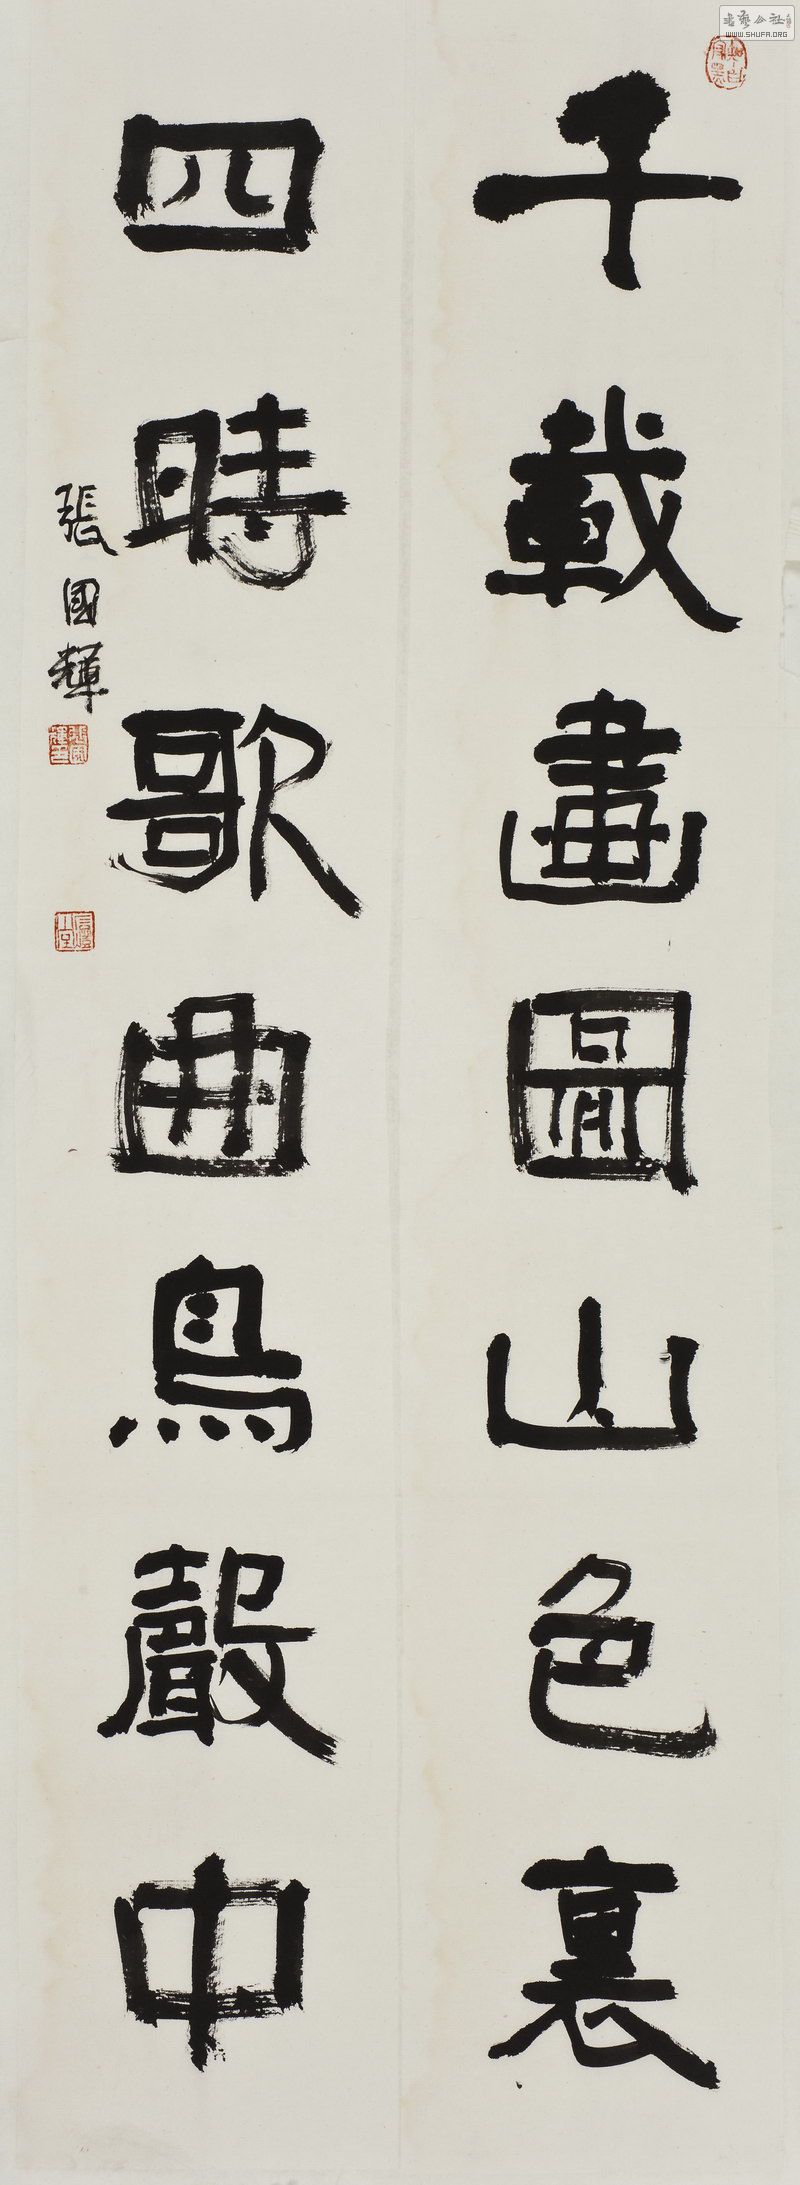 千載畫圖山色裏
四時歌曲鳥聲中
張國輝
書藝公社
WWW.SHUFA.ORG